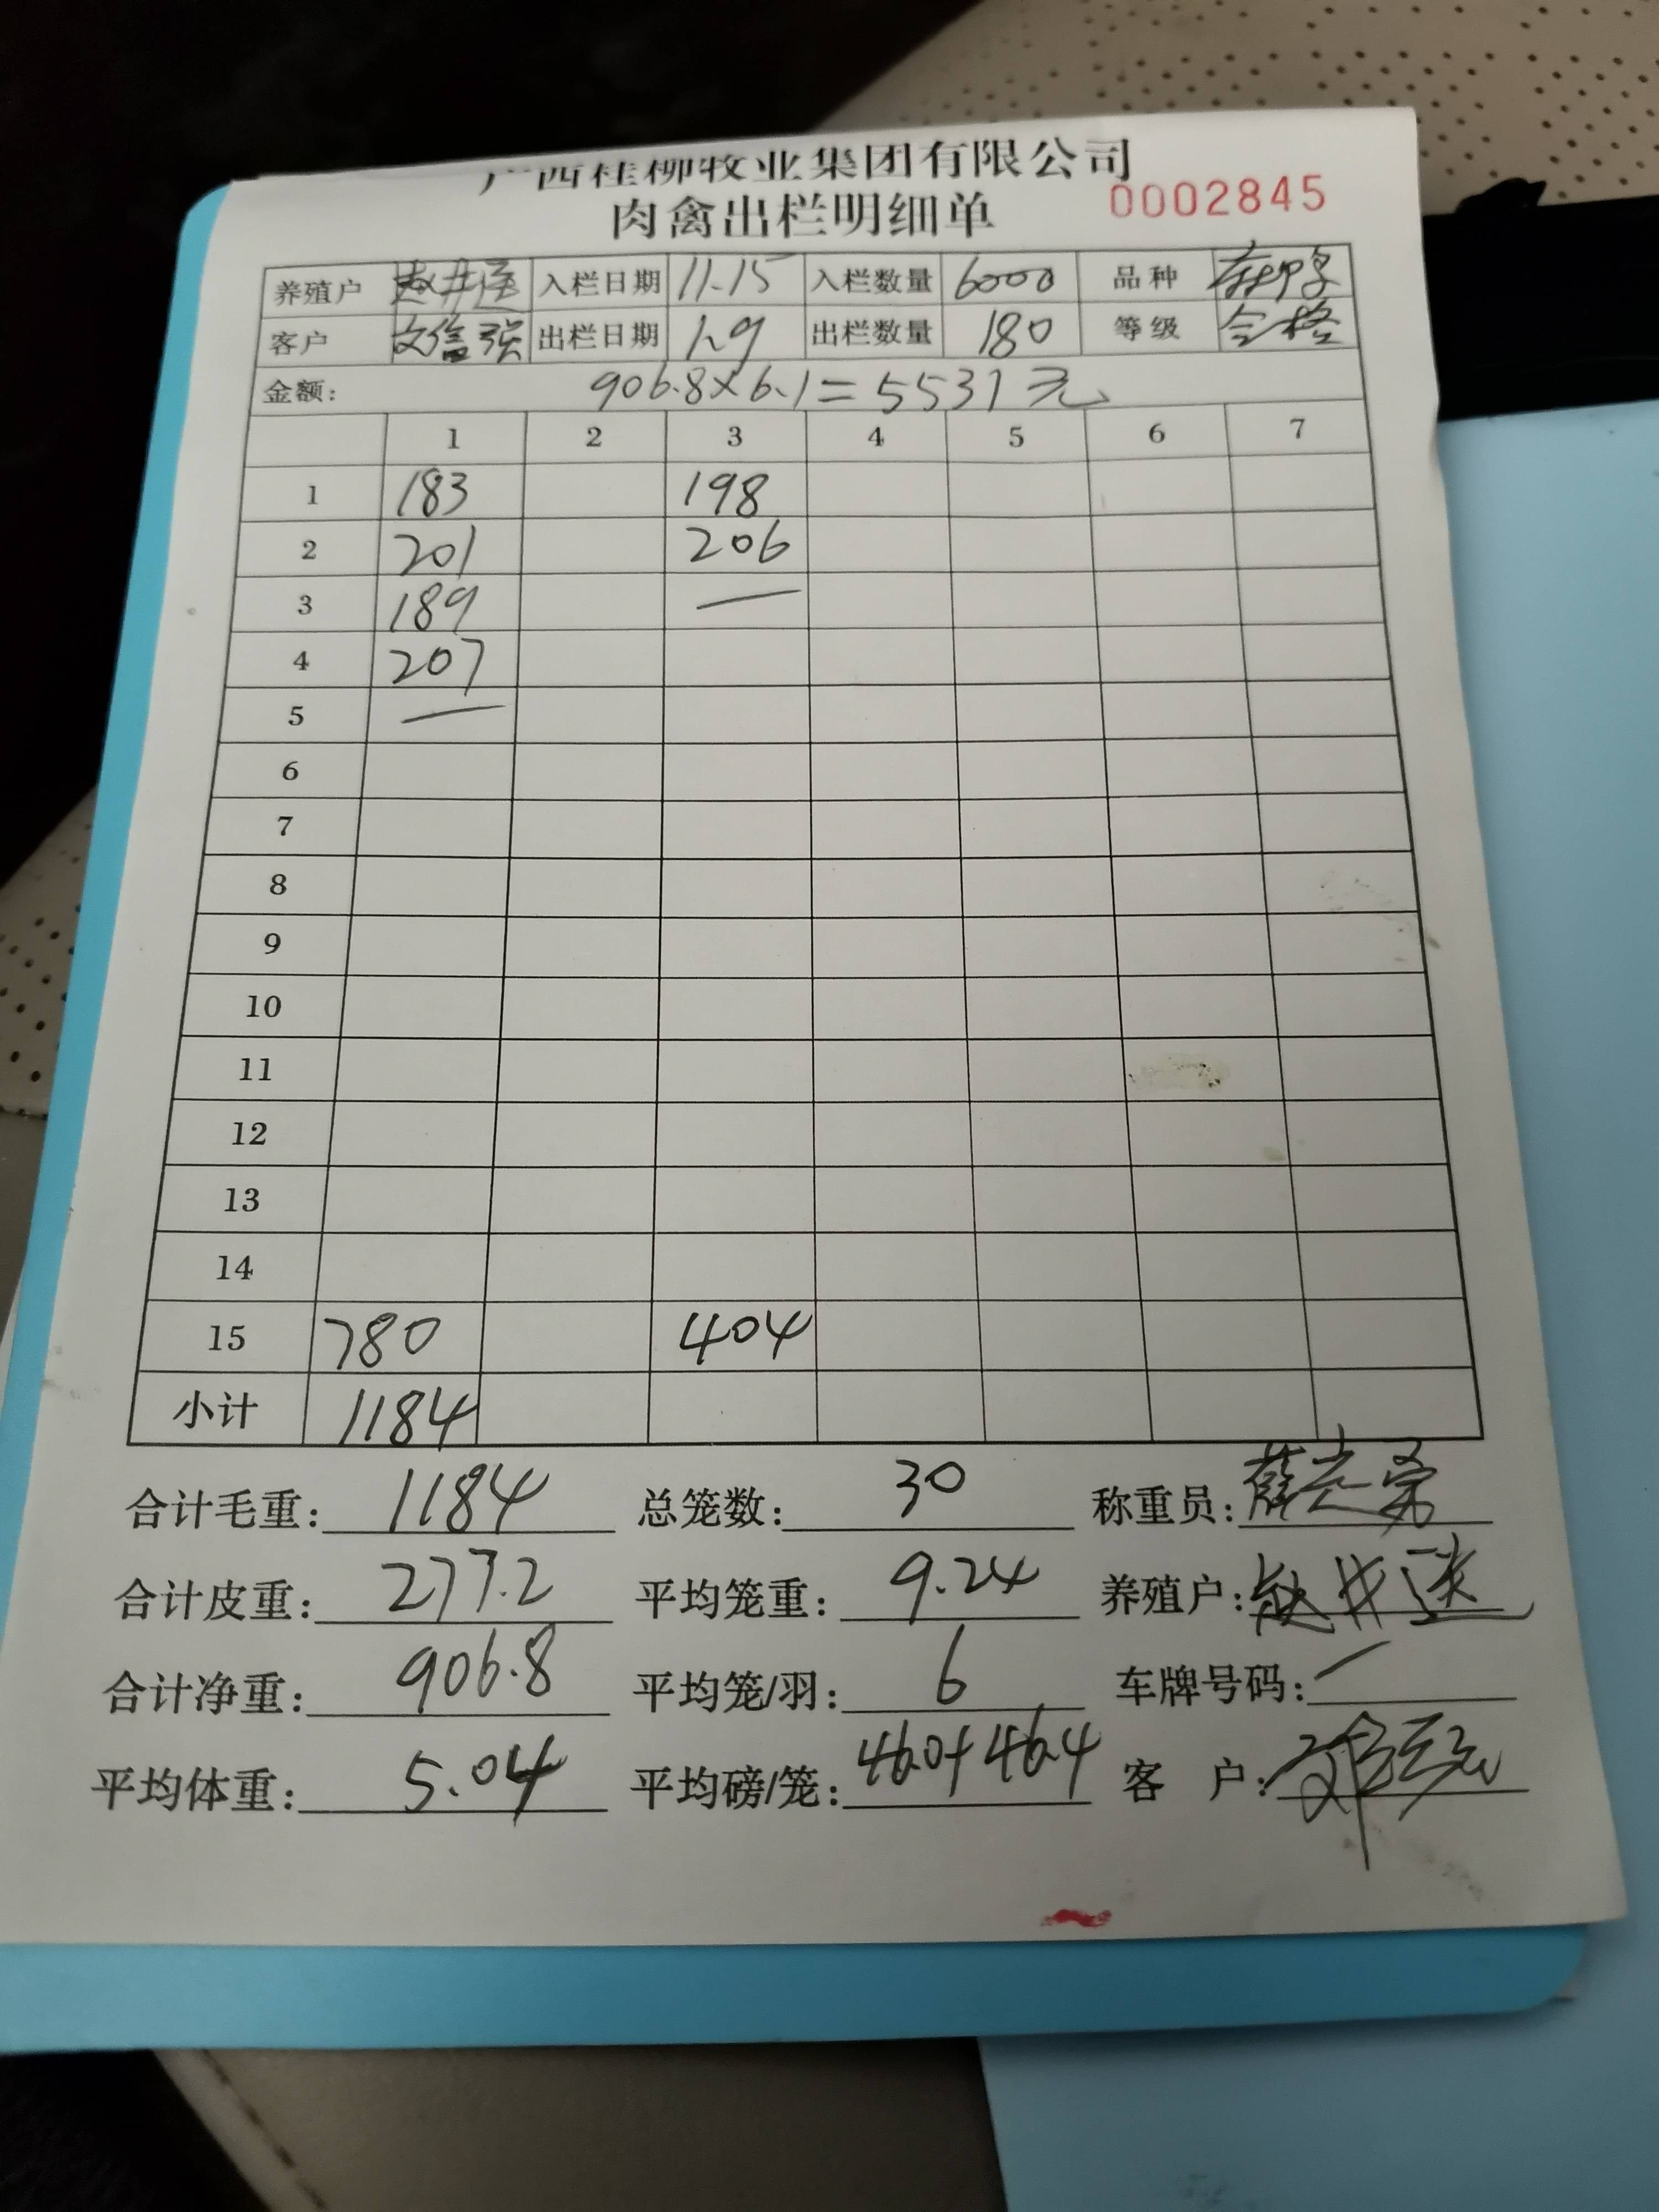 广西桂柳牧业集团有限公司
肉禽出栏明细单 0002845
养殖户 入栏日期 11.15 入栏数量 6000 品种 麻鸭
客户 文信强 出栏日期 1.9 出栏数量 180 等级 合格
金额: 906.8×6.1=5531元
1 2 3 4 5 6 7
1 183 198
2 201 206
3 189 —
4 207
5 —
6
7
8
9
10
11
12
13
14
15 780 404
小计 1184
合计毛重: 1184 总笼数: 30 称重员:
合计皮重: 277.2 平均笼重: 9.24 养殖户:
合计净重: 906.8 平均笼/羽: 6 车牌号码: —
平均体重: 5.04 平均磅/笼: 客 户: